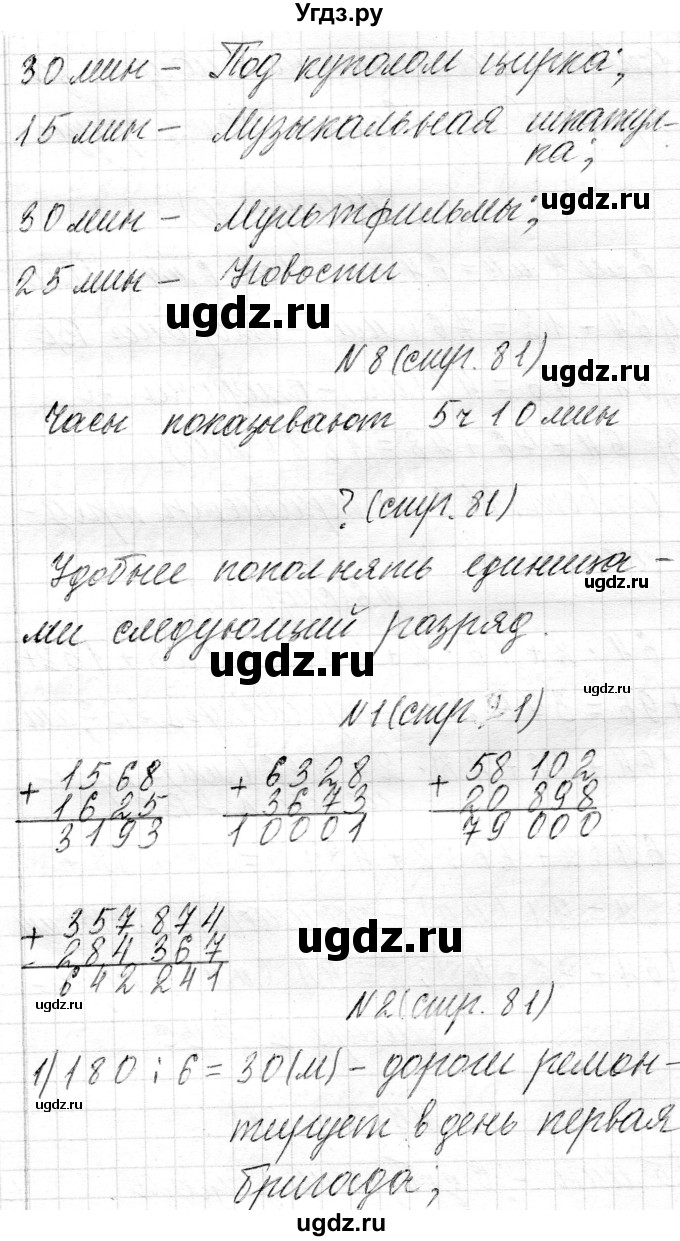 Угдз.ру
30 мин – Под куполом цирка;
15 мин – Музыкальная шкатул-
ка;
ugdz.ru
30 мин – Мультфильмы;
25 мин – Новости
ugdz.ru
N 8 (стр. 81)
ugdz.ru
Часы показывают 5 ч 10 мин
? (стр. 81)
Удобнее пополнять единица-
ugdz.ru
ми следующий разряд.
ugdz.ru
ugdz.ru
N 1 (стр. 81)
+ 1568 + 6328 + 58 102
1625 3673 20 898
3193 10001 79 000
+ 357 874
284 367
642 241
ugdz.ru
ugdz.ru
N 2 (стр. 81)
1) 180 : 6 = 30 (м) – дороги ремон-
ugdz.ru
тирует в день первая
бригада;
ugdz.ru